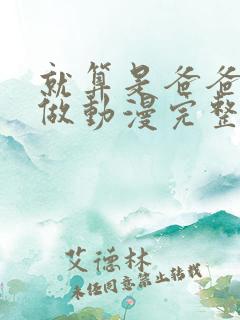 就算是爸爸
做動漫完整
艾德林
未经同意禁止转载